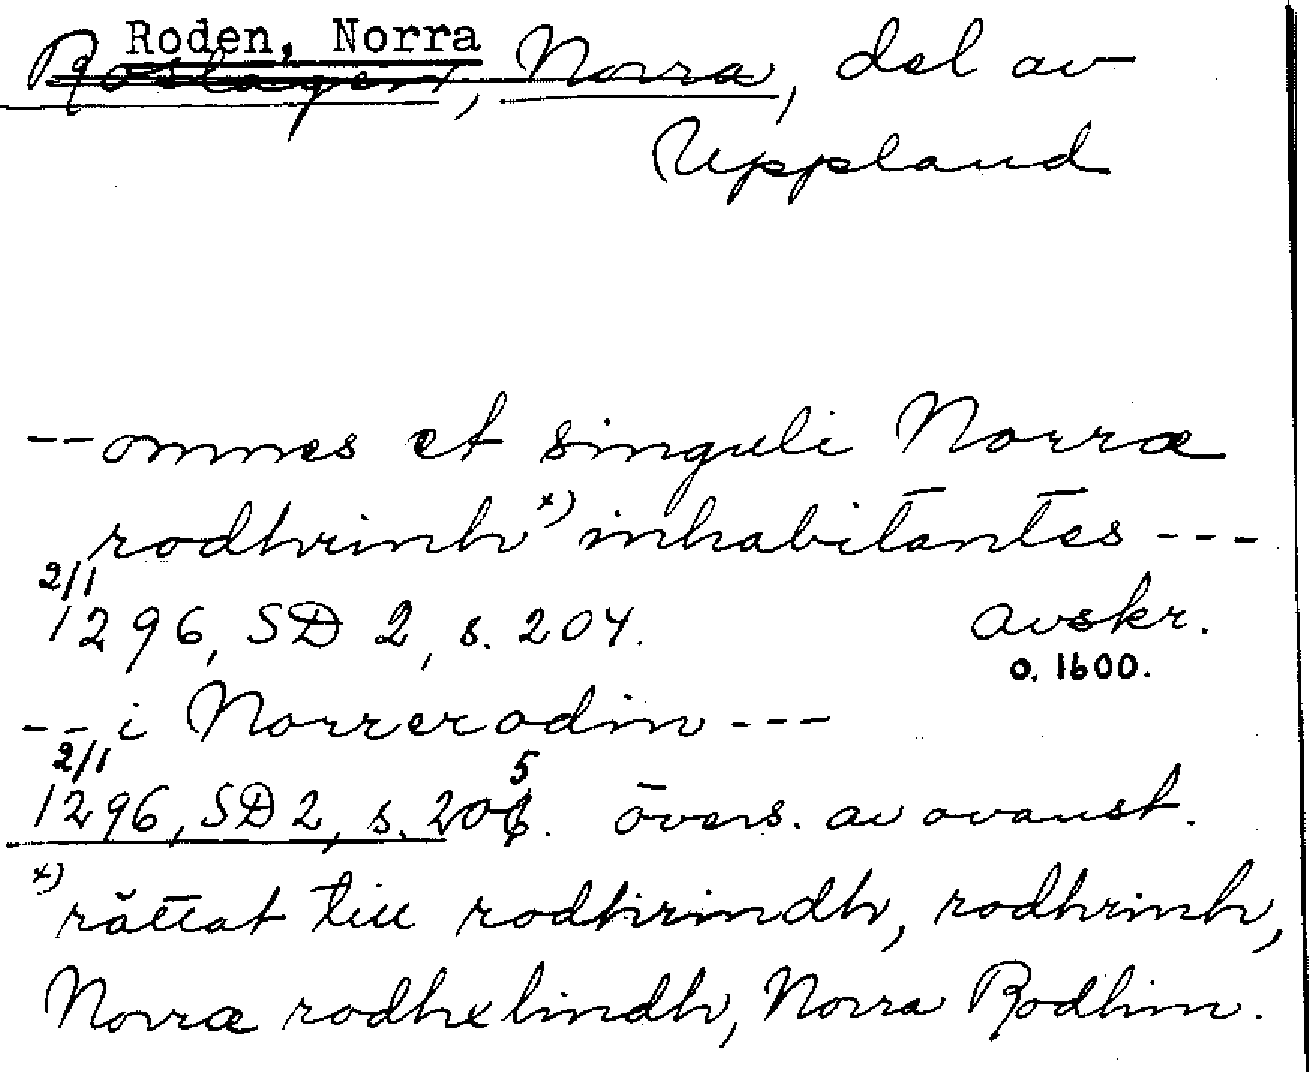 Roden, Norra
Roslagen, Norra, del av
Uppland
-- omnes et singuli Norræ
rodhrinh x) inhabitantes ---
2/1
1296, SD 2, s. 204. avskr.
o. 1600.
-- i Norrerodin ---
2/1
1296, SD 2, s. 205. övers. av ovanst.
x) rättat till rodhrindh, rodhrinh,
Norræ rodhxlindh, Norra Rodhin.